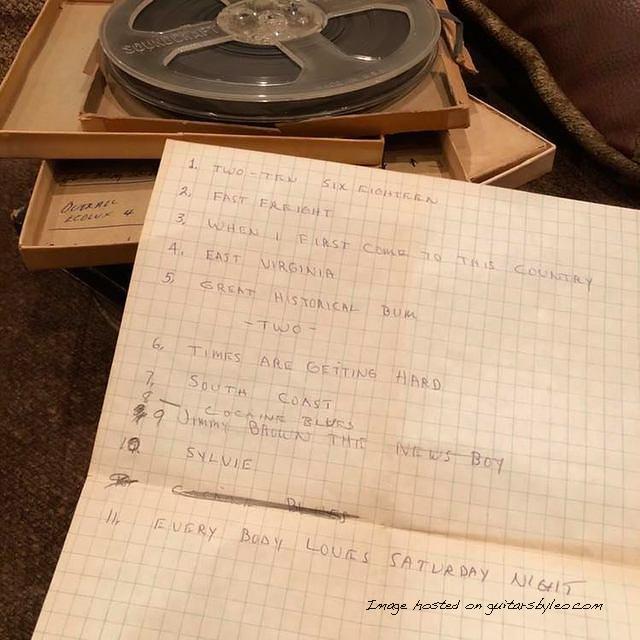 SOUNDCRAFT
OVERALL
1. TWO-TEN SIX EIGHTEEN
2. FAST FREIGHT
3. WHEN I FIRST COME TO THIS COUNTRY
4. EAST VIRGINIA
5. GREAT HISTORICAL BUM
- TWO -
6. TIMES ARE GETTING HARD
7. SOUTH COAST
8 — COCAINE BLUES
9 JIMMY BROWN THE NEWS BOY
10. SYLVIE
11. EVERY BODY LOVES SATURDAY NIGHT
Image hosted on guitarsbyleo.com